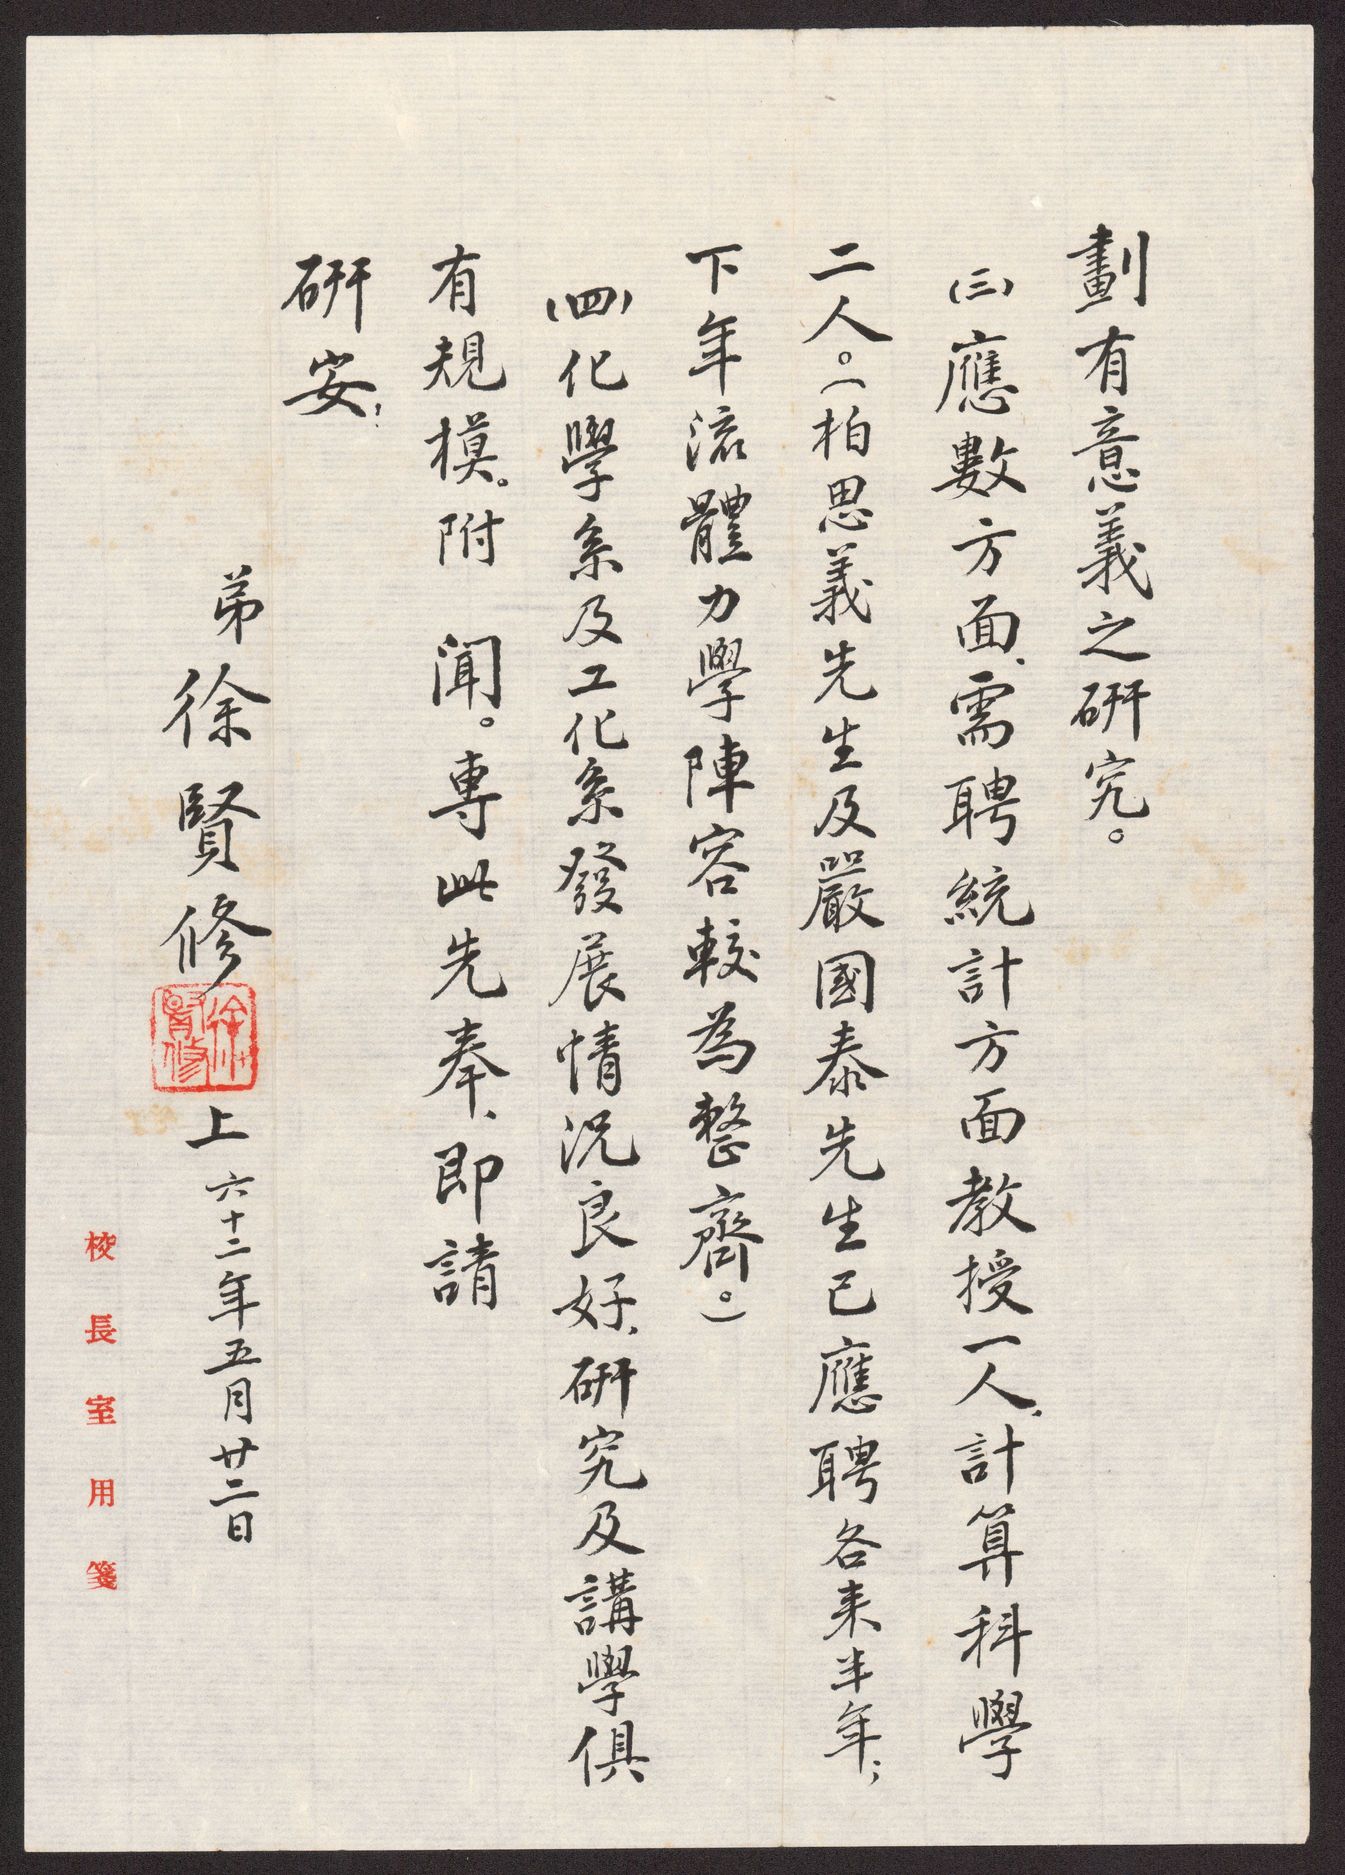 劃有意義之研究。
(三)應數方面、需聘統計方面教授一人、計算科學
二人。(柏思義先生及嚴國泰先生已應聘各來半年;
下年流體力學陣容較為整齊。)
(四)化學系及工化系發展情況良好、研究及講學俱
有規模。附 聞。專此先奉、即請
研安;
弟徐賢修上 六十二年五月廿二日
徐賢修
校長室用箋